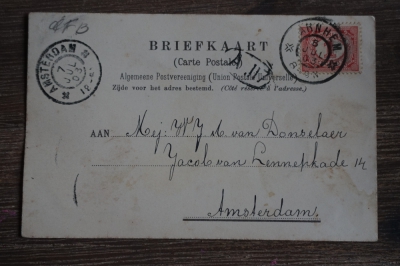 AFB
BRIEFKAART
(Carte Postale)
Algemeene Postvereeniging (Union Postale Universelle)
Zijde voor het adres bestemd. (Côté réservé à l'adresse.)
AMSTERDAM
7 JUL 03
ARNHEM
AAN Mej: W J A van Donselaer
Jacob van Lennepkade 14
Amsterdam.